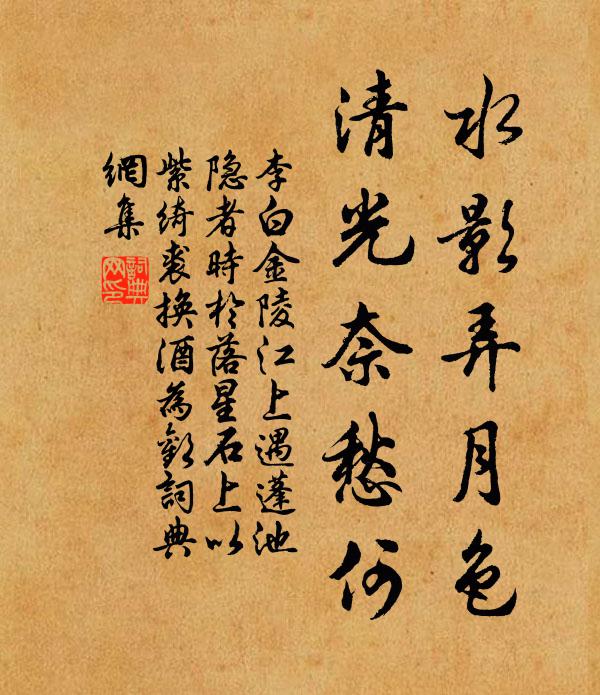 水影弄月色
清光奈愁何
李白金陵江上遇蓬池
隐者時於落星石上以
紫绮裘换酒為歡詞典
網集
詞典
网印